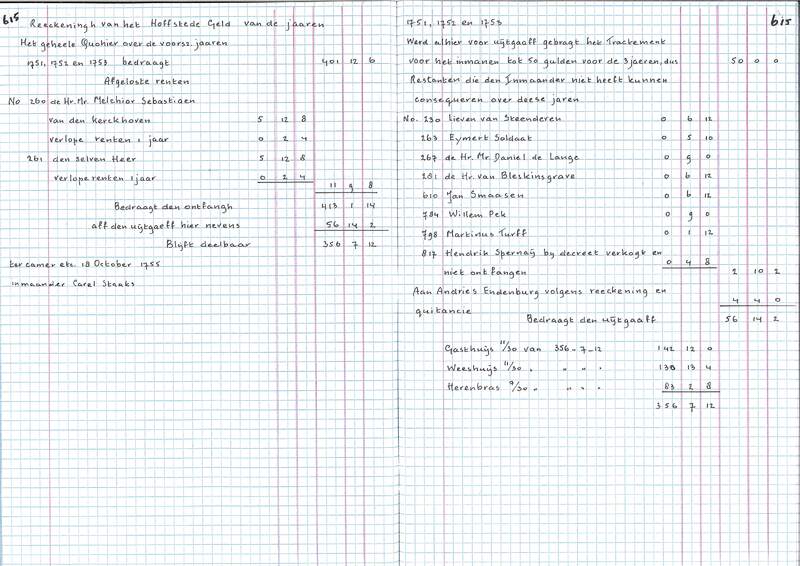 615 Reeckeningh van het Hoffstede Geld van de jaaren
Het geheele Quohier over de voorsz. jaaren
1751, 1752 en 1753 bedraagt 401 12 6
Afgeloste renten
No 260 de Hr. Mr. Melchior Sebastiaen
van den Kerckhoven 5 12 8
verlope renten 1 jaar 0 2 4
261 den selven Heer 5 12 8
verlope renten 1 jaar 0 2 4
11 9 8
Bedraagt den ontfangh 413 1 14
aff den uijtgaeff hier nevens 56 14 2
Blijft deelbaar 356 7 12
ter camer etc. 18 October 1755
inmaander Carel Staaks
1751, 1752 en 1753 615
Werd alhier voor uijtgaaff gebragt het Tractement
voor het inmanen tot 50 gulden voor de 3 jaeren, dus 50 0 0
Restanten die den Inmaander niet heeft kunnen
consequeren over deese jaren
No. 230 Lieven van Steenderen 0 6 12
263 Eymert Soldaat 0 5 10
267 de Hr. Mr. Daniel de Lange 0 9 0
281 de Hr. van Bleskinsgrave 0 6 12
610 Jan Smaasen 0 6 12
784 Willem Pek 0 9 0
798 Martinus Turff 0 1 12
817 Hendrik Spernaij by decreet verkogt en
niet ontfangen 0 4 8
2 10 2
Aan Andries Endenburg volgens reeckening en
quitancie 4 4 0
Bedraagt den uijtgaaff 56 14 2
Gasthuijs 11/30 van 356-7-12 142 12 0
Weeshuijs 11/30 " " " " 130 13 4
Herenbras 9/30 " " " " 83 2 8
356 7 12